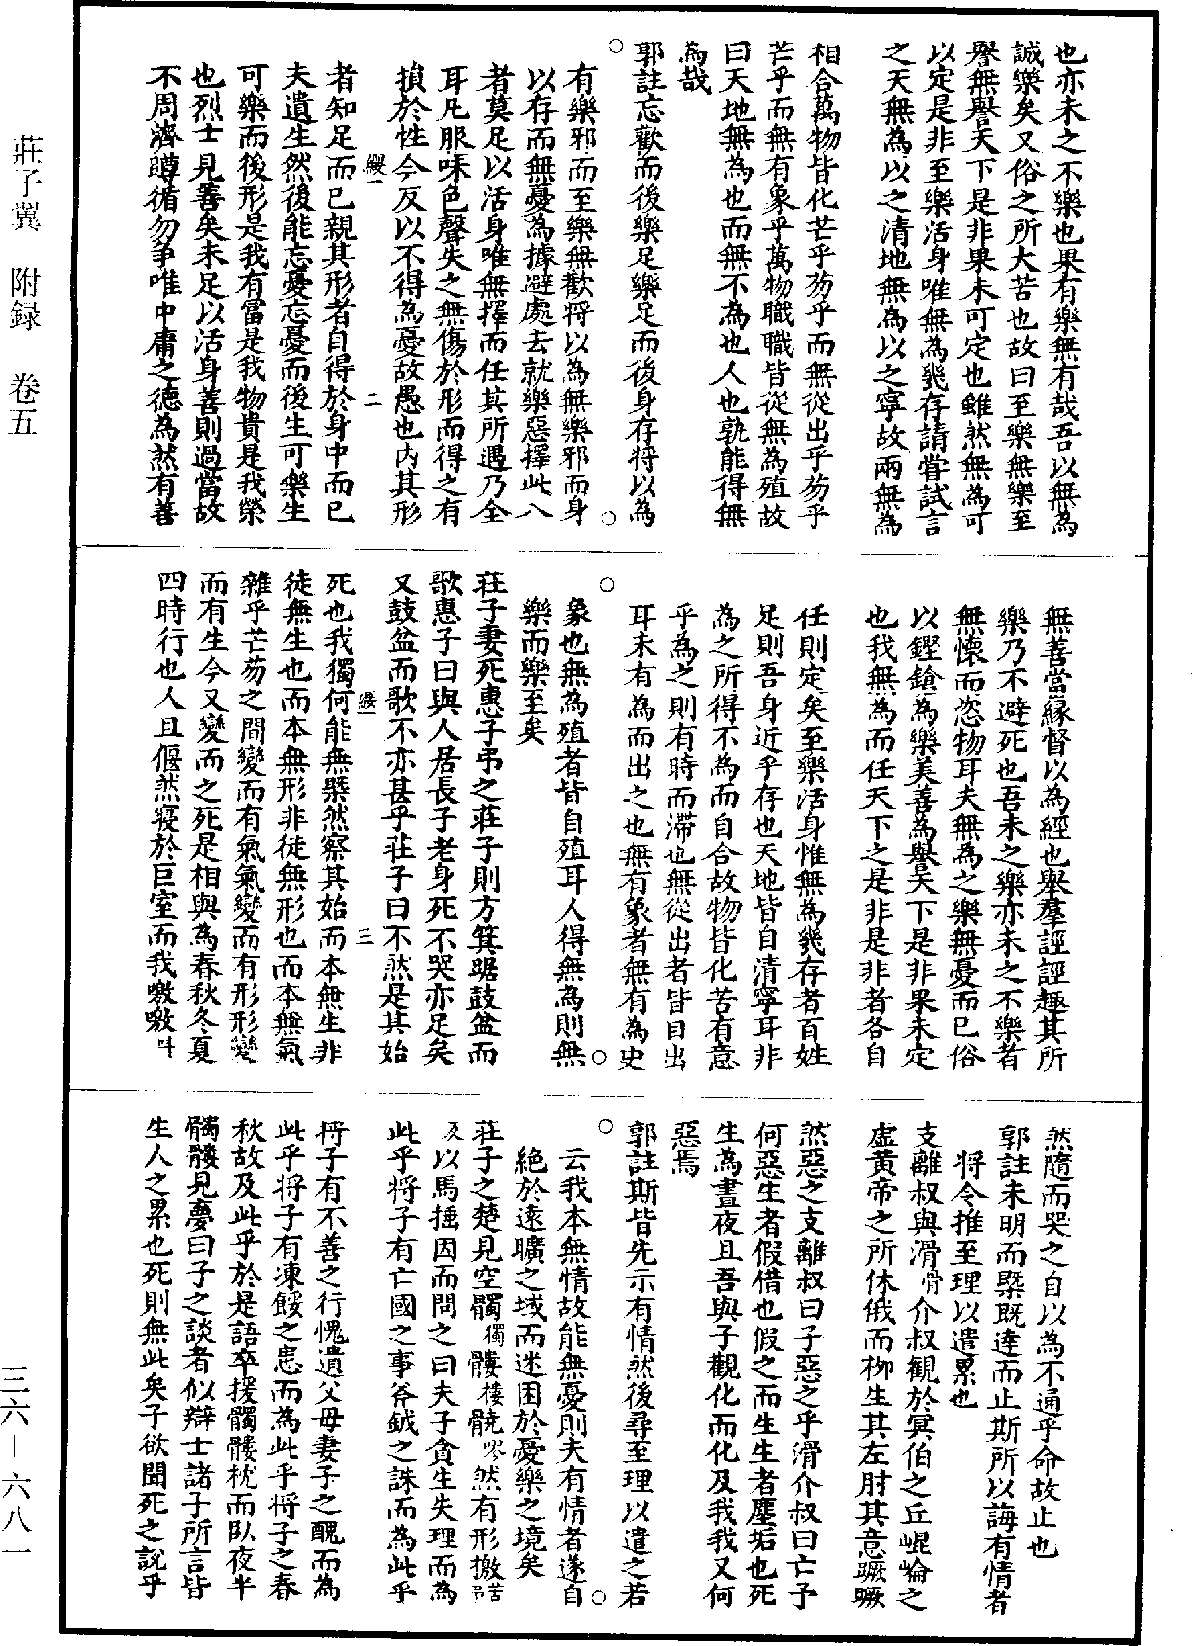 莊子翼　附録　卷五
三六—六八一
也亦未之不樂也果有樂無有哉吾以無為
誠樂矣又俗之所大苦也故曰至樂無樂至
譽無譽天下是非果未可定也雖然無為可
以定是非至樂活身唯無為幾存請嘗試言
之天無為以之清地無為以之寧故兩無為
相合萬物皆化芒乎芴乎而無從出乎芴乎
芒乎而無有象乎萬物職職皆從無為殖故
曰天地無為也而無不為也人也孰能得無
為哉
郭註忘歡而後樂足樂足而後身存将以為
有樂邪而至樂無歡将以為無樂邪而身
以存而無憂為據避處去就樂惡擇此八
者莫足以活身唯無擇而任其所遇乃全
耳凡服味色聲失之無傷於形而得之有
損於性今反以不得為憂故愚也内其形
綴一　二
者知足而已親其形者自得於身中而已
夫遺生然後能忘憂忘憂而後生可樂生
可樂而後形是我有富是我物貴是我榮
也烈士見善矣未足以活身善則過當故
不周濟蹲循勿争唯中庸之德為然有善
無善當緣督以為經也舉羣誙誙趣其所
樂乃不避死也吾未之樂亦未之不樂者
無懷而恣物耳夫無為之樂無憂而已俗
以鏗鎗為樂美善為譽天下是非果未定
也我無為而任天下之是非是非者各自
任則定矣至樂活身惟無為幾存者百姓
足則吾身近乎存也天地皆自清寧耳非
為之所得不為而自合故物皆化苦有意
乎為之則有時而滞也無從出者皆自出
耳未有為而出之也無有象者無有為史
象也無為殖者皆自殖耳人得無為則無
樂而樂至矣
莊子妻死惠子弔之莊子則方箕踞鼓盆而
歌惠子曰與人居長子老身死不哭亦足矣
又鼓盆而歌不亦甚乎莊子曰不然是其始
綴一　三
死也我獨何能無槩然察其始而本無生非
徒無生也而本無形非徒無形也而本無氣
雜乎芒芴之間變而有氣氣變而有形形變
而有生今又變而之死是相與為春秋冬夏
四時行也人且偃然寢於巨室而我噭噭叫
然隨而哭之自以為不通乎命故止也
郭註未明而槩既達而止斯所以誨有情者
将令推至理以遣累也
支離叔與滑骨介叔觀於冥伯之丘崐崘之
虛黄帝之所休俄而柳生其左肘其意蹶蹶
然惡之支離叔曰子惡之乎滑介叔曰亡予
何惡生者假借也假之而生生者塵垢也死
生為晝夜且吾與子觀化而化及我我又何
惡焉
郭註斯皆先示有情然後尋至理以遣之若
云我本無情故能無憂則夫有情者遂自
絶於逺曠之域而迷困於憂樂之境矣
莊子之楚見空髑獨髏樓髐哮然有形撽苦弔
反以馬捶因而問之曰夫子貪生失理而為
此乎将子有亡國之事斧鉞之誅而為此乎
将子有不善之行愧遺父母妻子之醜而為
此乎将子有凍餒之患而為此乎将子之春
秋故及此乎於是語卒援髑髏枕而卧夜半
髑髏見夢曰子之談者似辯士諸子所言皆
生人之累也死則無此矣子欲聞死之說乎